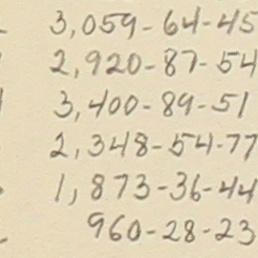 3,059-64-45
2,920-87-54
3,400-89-51
2,348-54-77
1,873-36-44
960-28-23